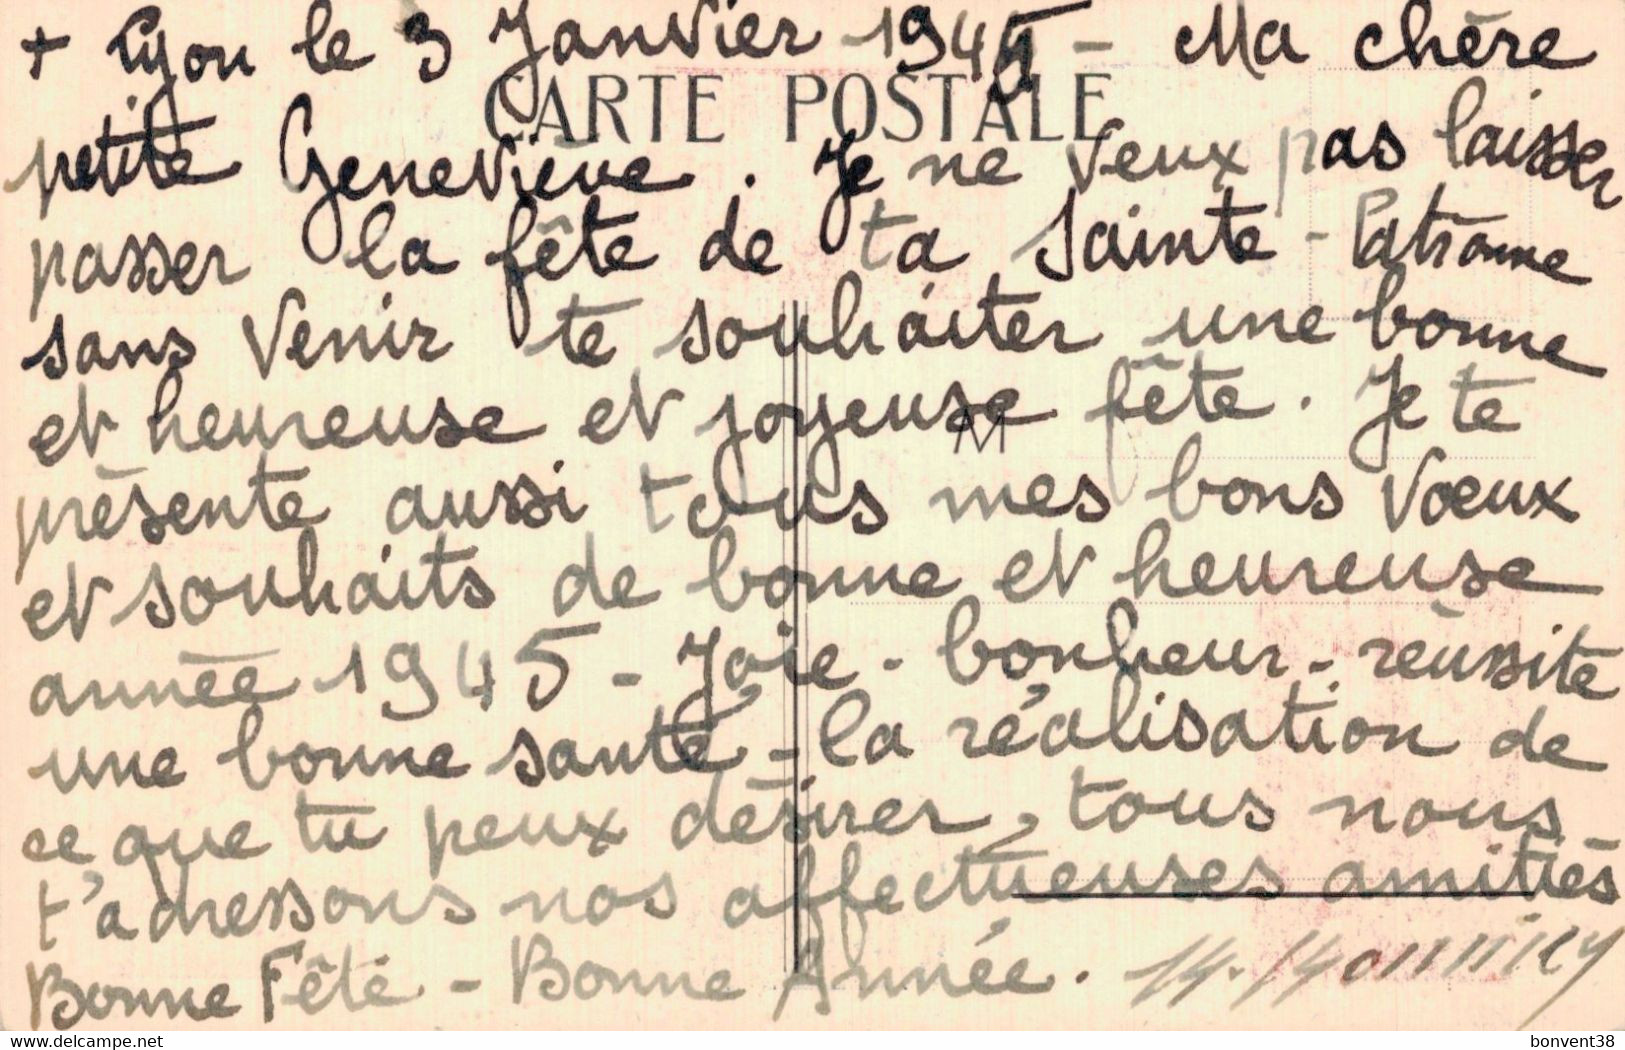 + Lyon le 3 Janvier 1945 - Ma chère
CARTE POSTALE
petite Geneviève. Je ne veux pas laisser
passer la fête de ta Sainte-Patronne
sans venir te souhaiter une bonne
et heureuse et joyeuse fête. Je te
M
présente aussi tous mes bons voeux
et souhaits de bonne et heureuse
année 1945 - Joie - bonheur - réussite
une bonne santé - la réalisation de
ce que tu peux désirer, tous nous
t'adressons nos affectueuses amitiés
Bonne Fête - Bonne Année.
www.delcampe.net
bonvent38